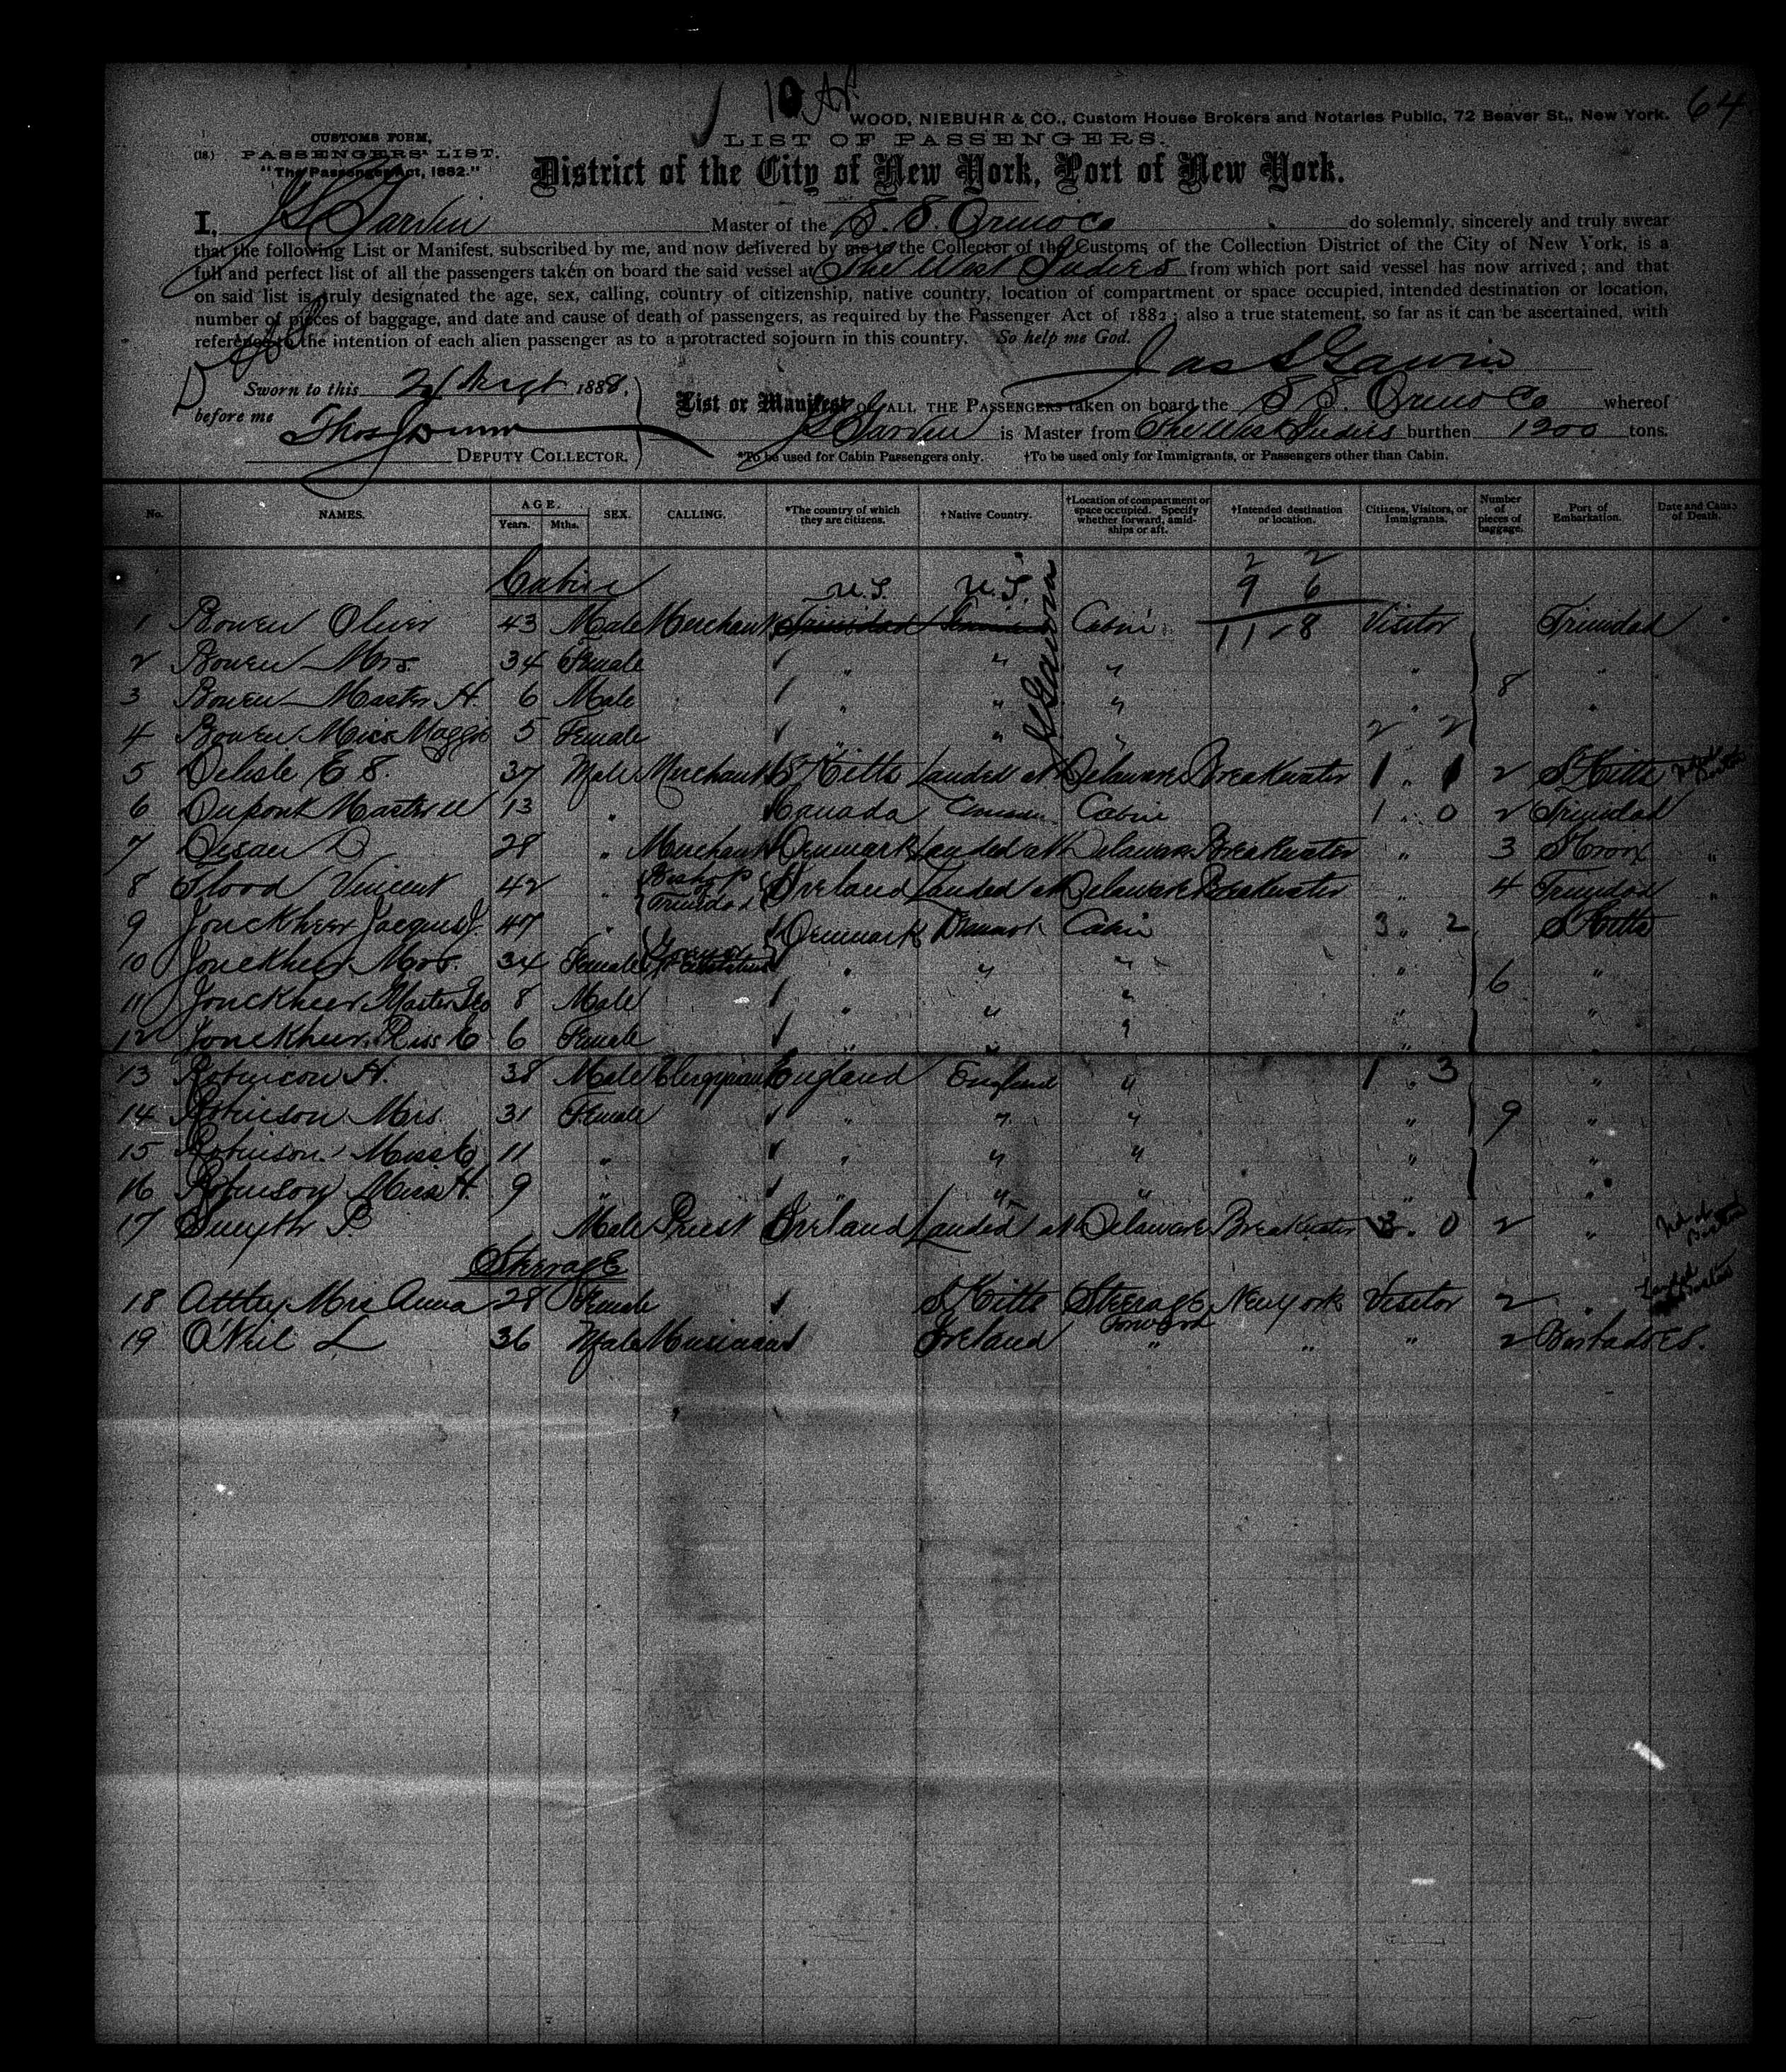 10
64
WOOD, NIEBUHR & CO., Custom House Brokers and Notaries Public, 72 Beaver St., New York.
CUSTOMS FORM.
LIST OF PASSENGERS.
(18.) PASSENGERS' LIST.
"The Passenger Act, 1882."
District of the City of New York, Port of New York.
I, J S Garvin Master of the S. S. Orinoco do solemnly, sincerely and truly swear
that the following List or Manifest, subscribed by me, and now delivered by me to the Collector of the Customs of the Collection District of the City of New York, is a
full and perfect list of all the passengers taken on board the said vessel at The West Indies from which port said vessel has now arrived; and that
on said list is truly designated the age, sex, calling, country of citizenship, native country, location of compartment or space occupied, intended destination or location,
number of pieces of baggage, and date and cause of death of passengers, as required by the Passenger Act of 1882; also a true statement, so far as it can be ascertained, with
reference to the intention of each alien passenger as to a protracted sojourn in this country. So help me God.
Jas S Garvin
Sworn to this 1888.
before me Thos Dunn
DEPUTY COLLECTOR.
List or Manifest OF ALL THE PASSENGERS taken on board the S S. Orinoco whereof
J S Garvin is Master from The West Indies burthen 1200 tons.
*To be used for Cabin Passengers only. †To be used only for Immigrants, or Passengers other than Cabin.
No. NAMES. AGE. Years. Mths. SEX. CALLING. *The country of which they are citizens. †Native Country. †Location of compartment or space occupied. Specify whether forward, amidships or aft. †Intended destination or location. Citizens, Visitors, or Immigrants. Number of pieces of baggage. Port of Embarkation. Date and Cause of Death.
Cabin
2 2
U.S. U.S. 9 6
1 Bowen Oliver 43 Male Merchant Trinidad Cabin 11 - 8 Visitor Trinidad
2 Bowen Mrs. 34 Female " " " " "
3 Bowen Master H. 6 Male " " " " 8 "
4 Bowen Miss Maggie 5 Female " " " 2 2
J S Garvin
5 Delisle E S. 37 Male Merchant St Kitts Landed at Delaware Breakwater 1 " 1 2 St Kitts
6 Dupont Master U 13 " Canada Cabin 1 " 0 2 Trinidad
7 D 28 " Merchant Denmark Landed at Delaware Breakwater " 3 St Croix "
8 Flood Vincent 42 " Bishop of Trinidad Ireland Landed at Delaware Breakwater " 4 Trinidad "
9 Jonckheer Jacques J. 47 " Denmark Denmark Cabin 3 " 2 St Kitts
10 Jonckheer Mrs. 34 Female " " " " 6 "
11 Jonckheer Master Leo 8 Male " " " " "
12 Jonckheer Miss C 6 Female " " " " "
13 Robinson H. 38 Male Clergyman England England " 1 " 3 "
14 Robinson Mrs. 31 Female " " " " 9 "
15 Robinson Miss C 11 " " " " " "
16 Robinson Miss H. 9 " " " " " "
17 Smyth P. Male Priest Ireland Landed at Delaware Breakwater 3 " 0 2 "
Steerage
18 Attley Mrs Anna 28 Female St Kitts Steerage Forward New York Visitor 2 "
19 O'Neil L 36 Male Musician Ireland " " " 2 Barbadoes.